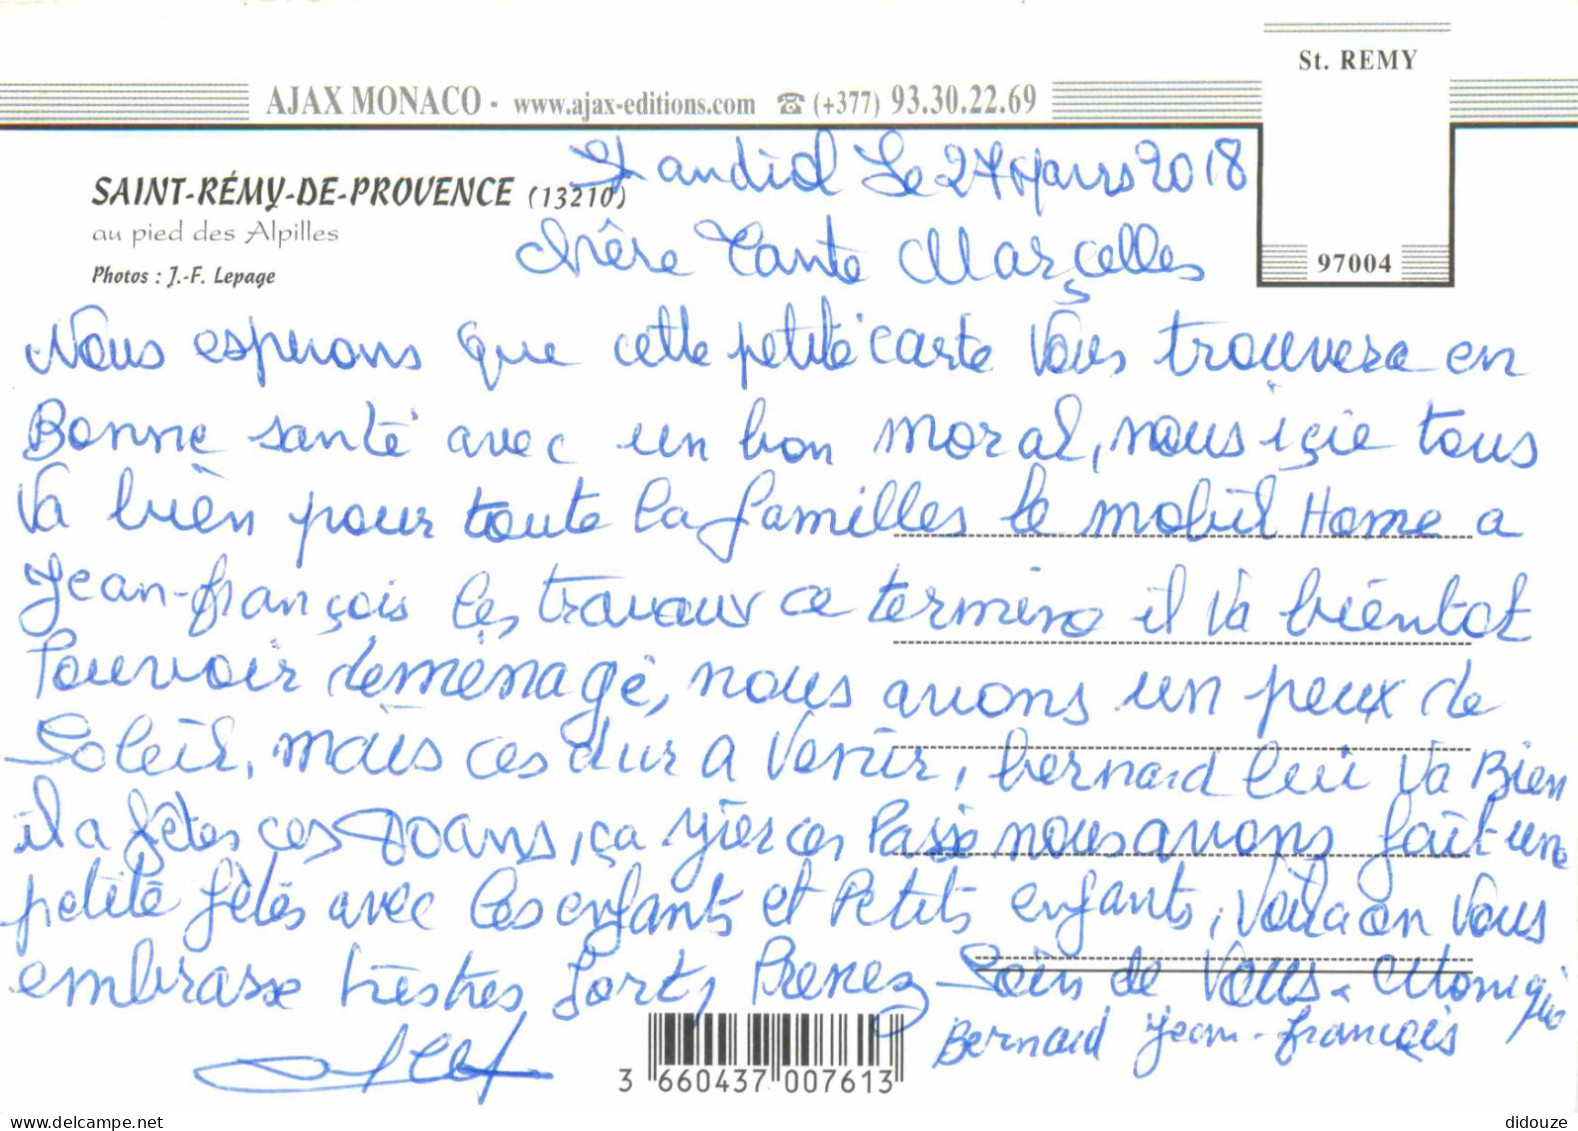 St. REMY
AJAX MONACO - www.ajax-editions.com ☎ (+377) 93.30.22.69
St andiol Le 27 Mars 2018
SAINT-RÉMY-DE-PROVENCE (13210)
au pied des Alpilles
Photos : J.-F. Lepage
97004
Chère Tante Marçelles
Nous esperons que cette petite carte Vous trouvera en
Bonne santé avec un bon moral, nous içie tous
Va bien pour toute la familles le mobil Home a
Jean-françois les travaux ce termine il Va bientot
Pouvoir deménagé, nous avons un peux de
Soleil, mais ces dur a Venir, bernard lui Va Bien
il a fêtes ces 70 ans, ça yier ces Passé nous avons fait une
petite fêtes avec les enfants et Petits enfants, Voila on Vous
embrasse très très fort, Prenez Soin de Vous. Monique
Bernard Jean-françois
3 660437 007613
delcampe.net
didouze